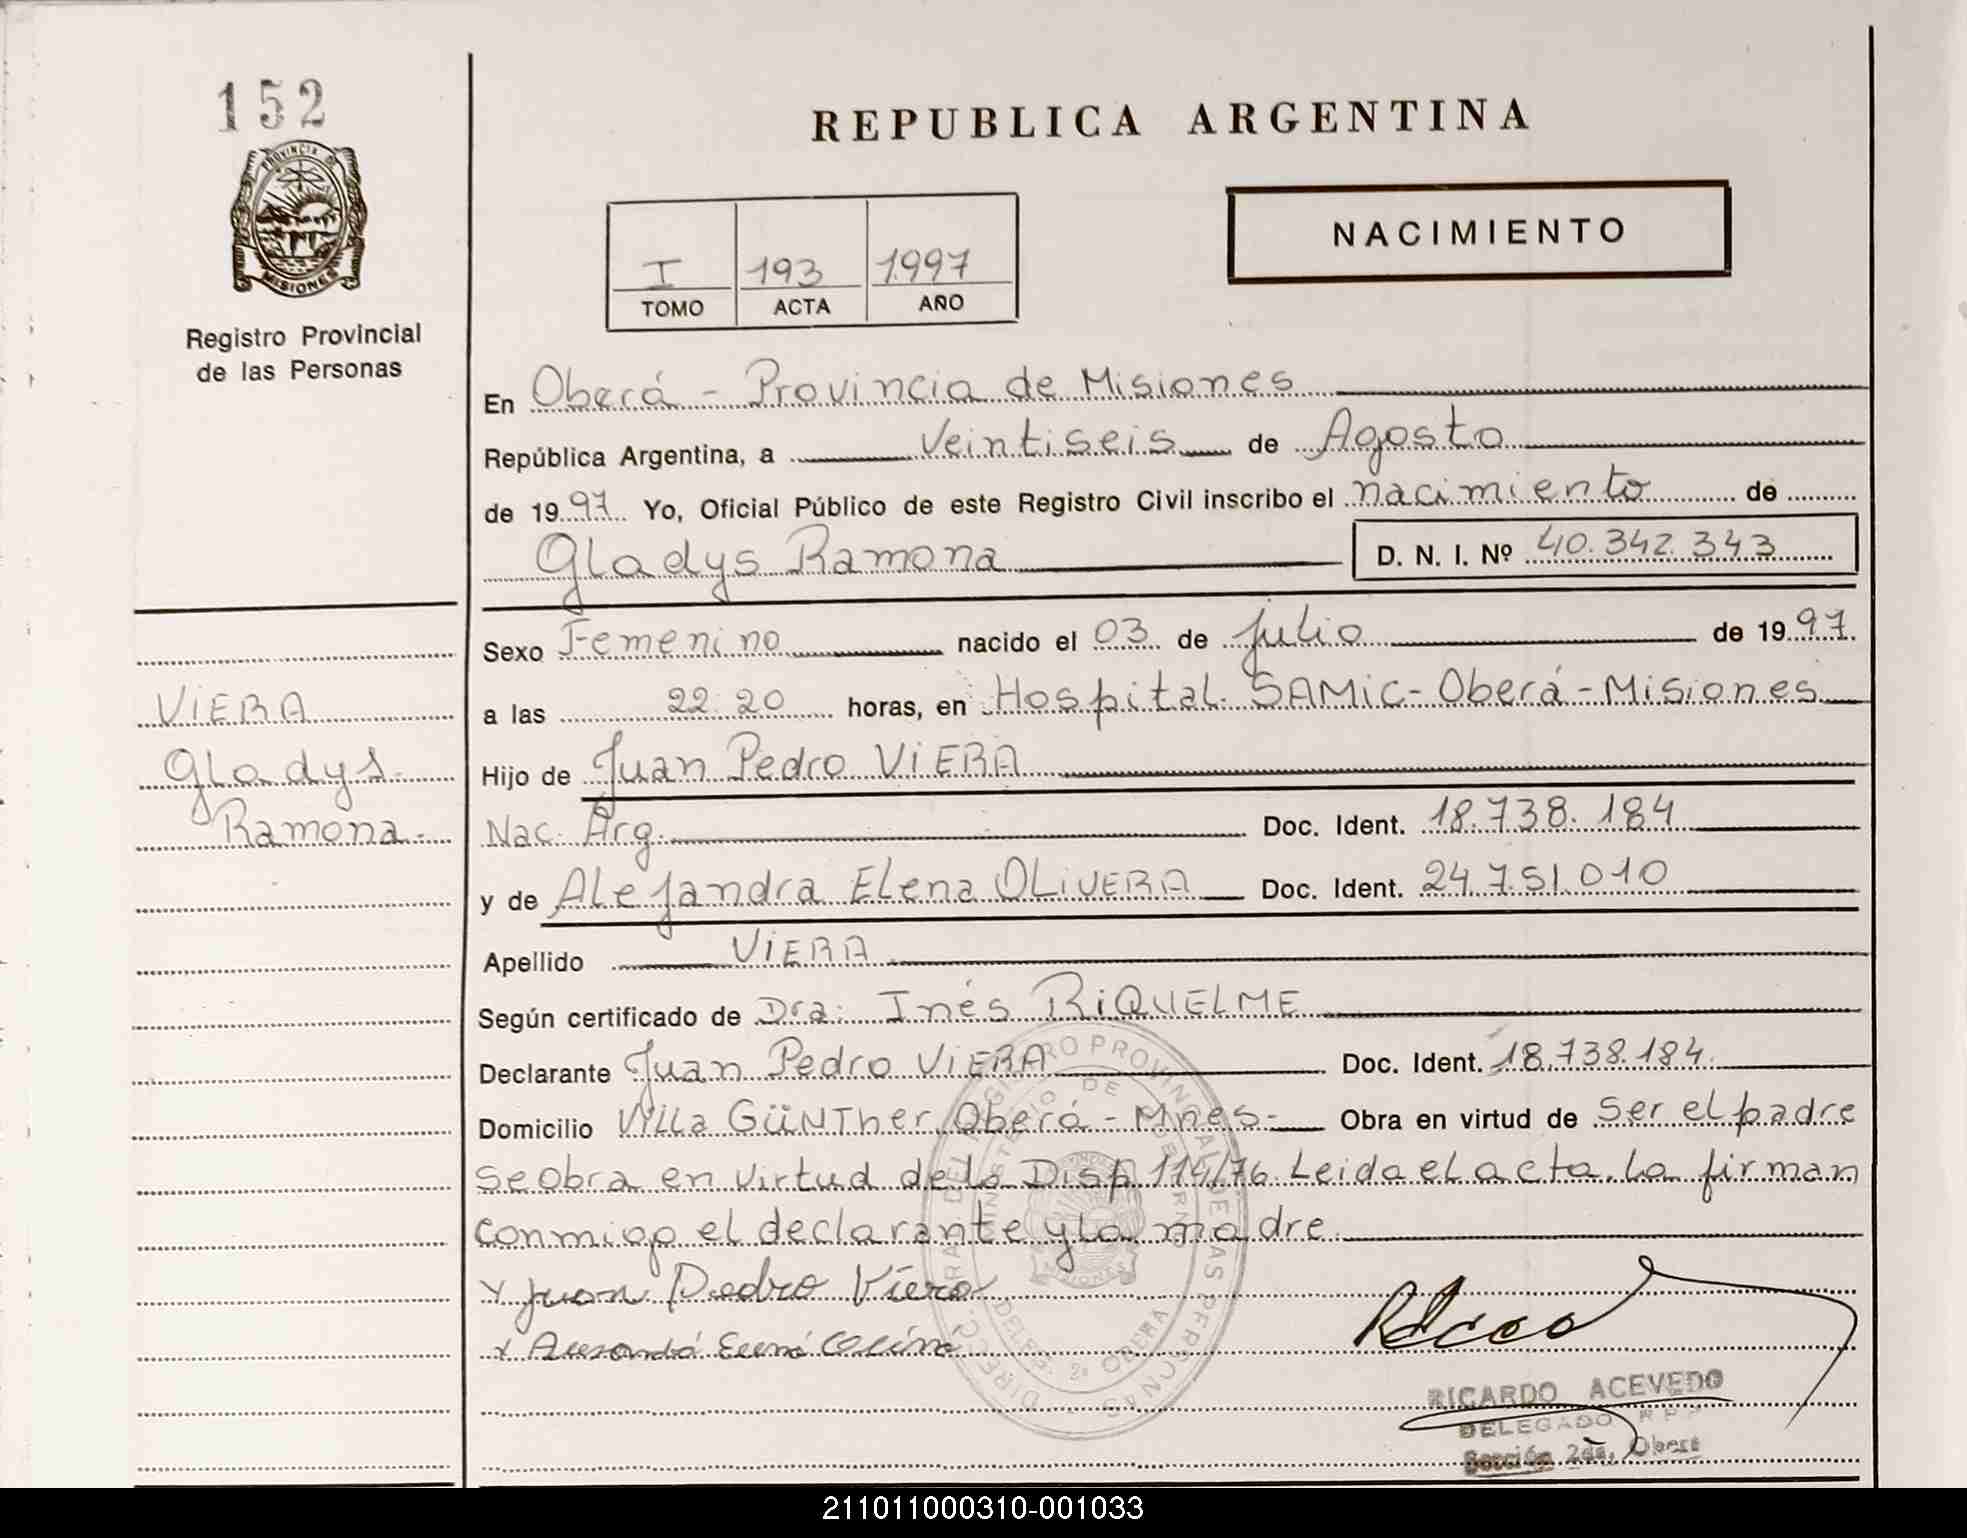 152
REPUBLICA ARGENTINA
PROVINCIA DE
MISIONES
Registro Provincial
de las Personas
NACIMIENTO
I 193 1997
TOMO ACTA AÑO
En Oberá - Provincia de Misiones
República Argentina, a Veintiseis de Agosto
de 1997 Yo, Oficial Público de este Registro Civil inscribo el nacimiento de
Gladys Ramona D. N. I. Nº 40.342.343
Sexo Femenino nacido el 03 de Julio de 1997.
VIERA
a las 22.20 horas, en Hospital SAMIC - Oberá - Misiones
Gladys
Hijo de Juan Pedro VIERA
Ramona.
Nac. Arg. Doc. Ident. 18.738.184
y de Alejandra Elena OLIVERA Doc. Ident. 24.751.010
Apellido VIERA
Según certificado de Dra: Inés RIQUELME
Declarante Juan Pedro VIERA Doc. Ident. 18.738.184.
Domicilio Villa GÜNTher. Oberá - Mnes - Obra en virtud de Ser el padre
Se obra en virtud de la Disp. 114/76. Leida el acta, la firman
conmigo el declarante y la madre.
x Juan Pedro Viera
DIRECC. GRAL. DEL REGISTRO PROVINCIAL DE LAS PERSONAS
MINISTERIO DE GOBIERNO
MISIONES
DELEG. 2ª OBERA
RICARDO ACEVEDO
DELEGADO R P P
Sección 2da. Oberá
211011000310-001033